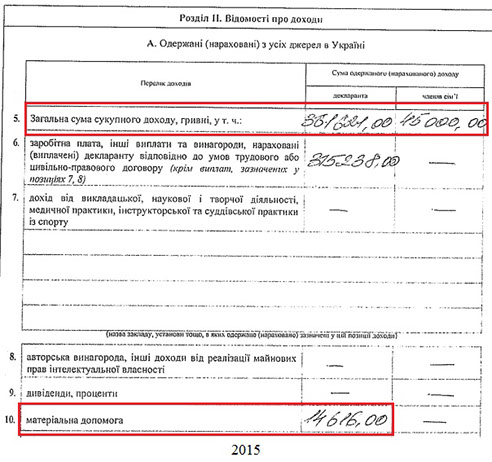 Розділ II. Відомості про доходи
А. Одержані (нараховані) з усіх джерел в Україні
Перелік доходів
Сума одержаного (нарахованого) доходу
декларанта
членів сім'ї
5. Загальна сума сукупного доходу, гривні, у т. ч.:
6. заробітна плата, інші виплати та винагороди, нараховані
(виплачені) декларанту відповідно до умов трудового або
цивільно-правового договору (крім виплат, зазначених у
позиціях 7, 8)
315238,00 —
7. дохід від викладацької, наукової і творчої діяльності,
медичної практики, інструкторської та суддівської практики
із спорту
— —
(назва закладу, установи тощо, в яких одержано (нараховано) зазначені у цій позиції доходи)
8. авторська винагорода, інші доходи від реалізації майнових
прав інтелектуальної власності
— —
9. дивіденди, проценти — —
10. матеріальна допомога 14616,00 —
2015